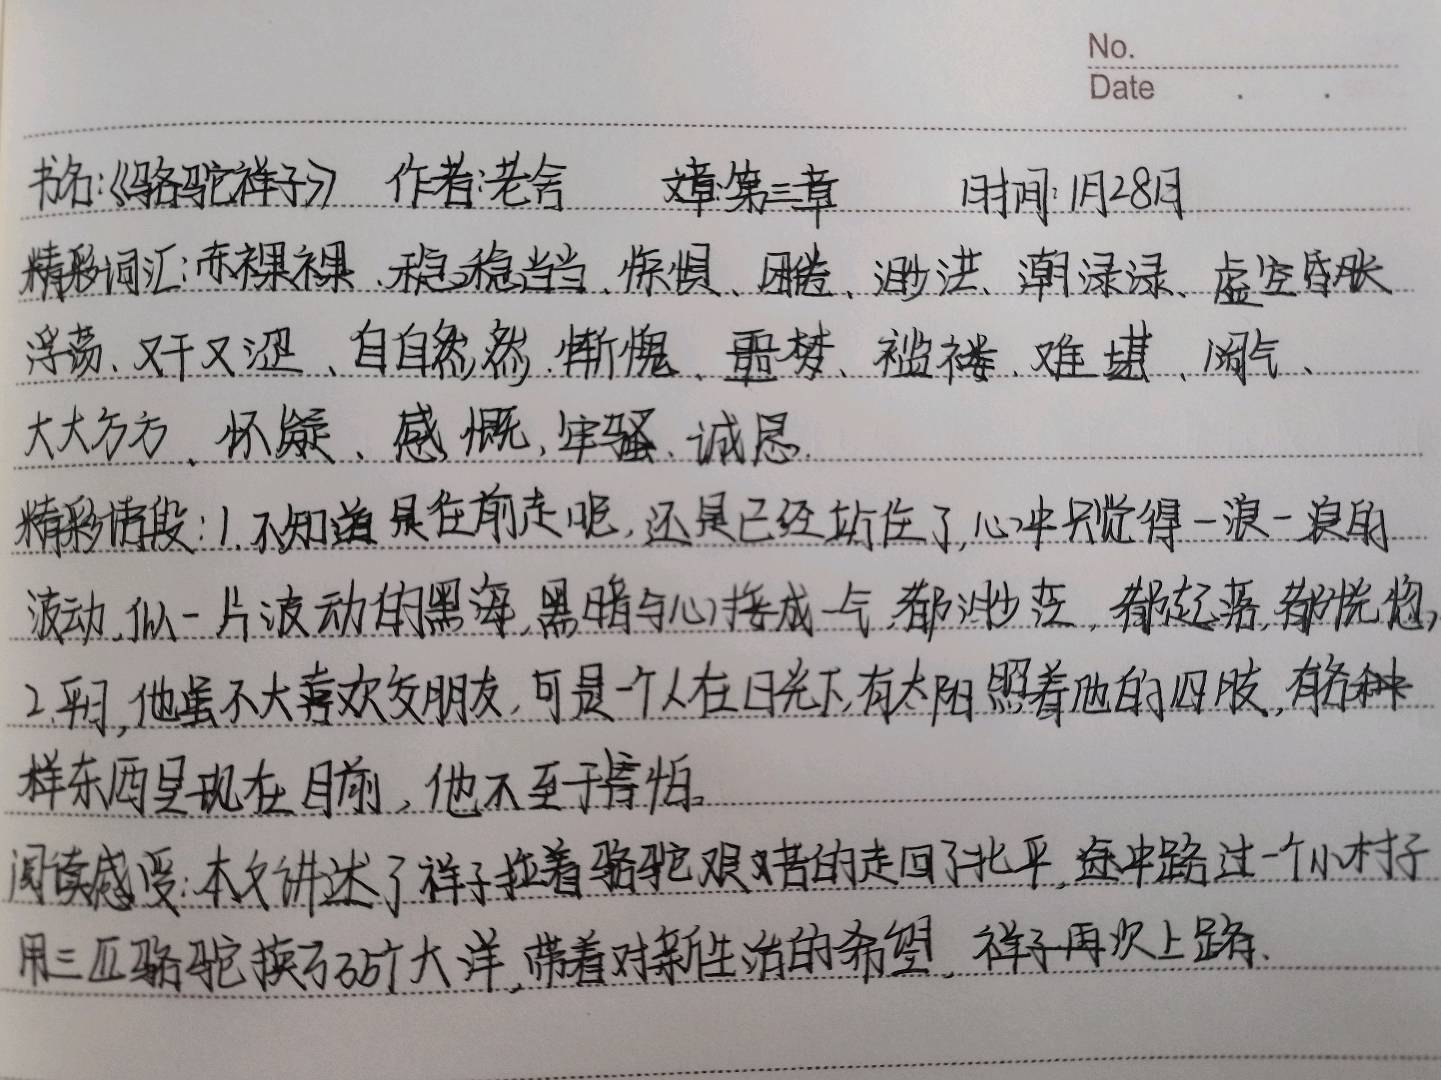 No.
Date . .
书名:《骆驼祥子》 作者:老舍 文章:第三章 时间:1月28日
精彩词汇:赤裸裸、稳稳当当、惊惧、困倦、渺茫、潮渌渌、虚空昏胀
浮荡、又干又涩、自自然然、惭愧、噩梦、褴褛、难堪、阔气、
大大方方、怀疑、感慨、牢骚、诚恳.
精彩情段:1.不知道是在前走呢,还是已经站住了,心中只觉得一浪一浪的
波动,似一片波动的黑海,黑暗与心接成一气,都渺茫,都起落,都恍惚,
2.平日,他虽不大喜欢交朋友,可是一个人在日光下,有太阳照着他的四肢,有各种
样东西呈现在目前,他不至于害怕。
阅读感受:本文讲述了祥子拉着骆驼艰难的走回了北平,途中路过一个小村子
用三匹骆驼换了35个大洋,带着对新生活的希望,祥子再次上路.